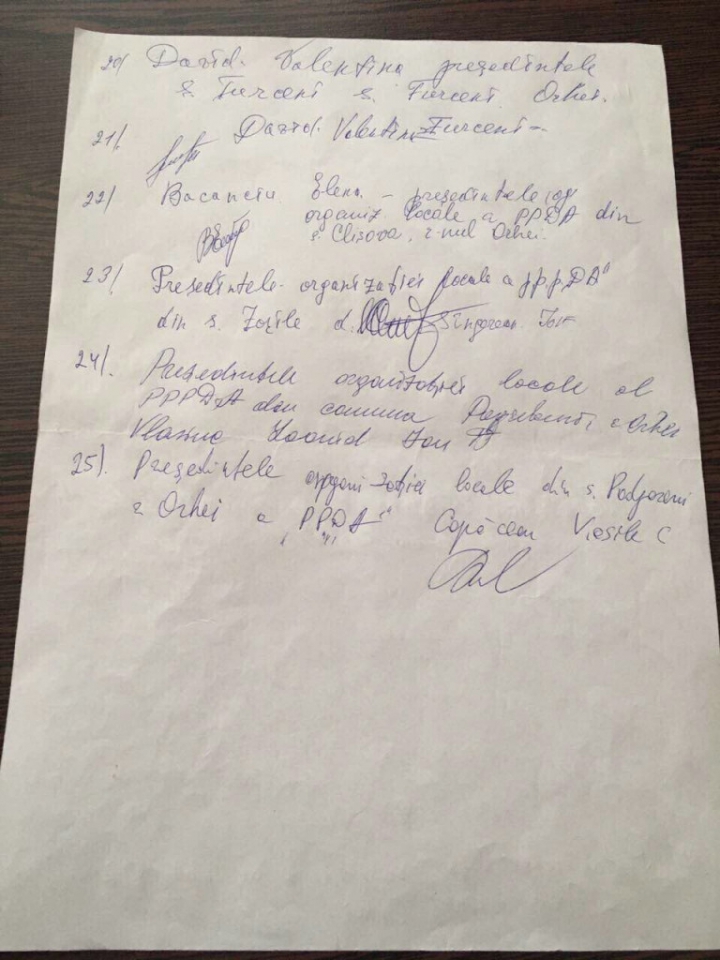 20/ David Valentina președintele
s. Furceni s. Furceni Orhei.
21/. David Valentina Furceni
22/ Elena - președintele org
organiz. locale a PPDA din
s. Clișova, r-nul Orhei.
23/ Președintele organizației locale a „PPDA"
din s. Zorile d. Ion
24/. Președintele organizației locale al
PPPDA din comuna r. Orhei
Leonid Ion
25). Președintele organizației locale din s. Podgoreni
r Orhei a „PPDA" Copăcean Vasile